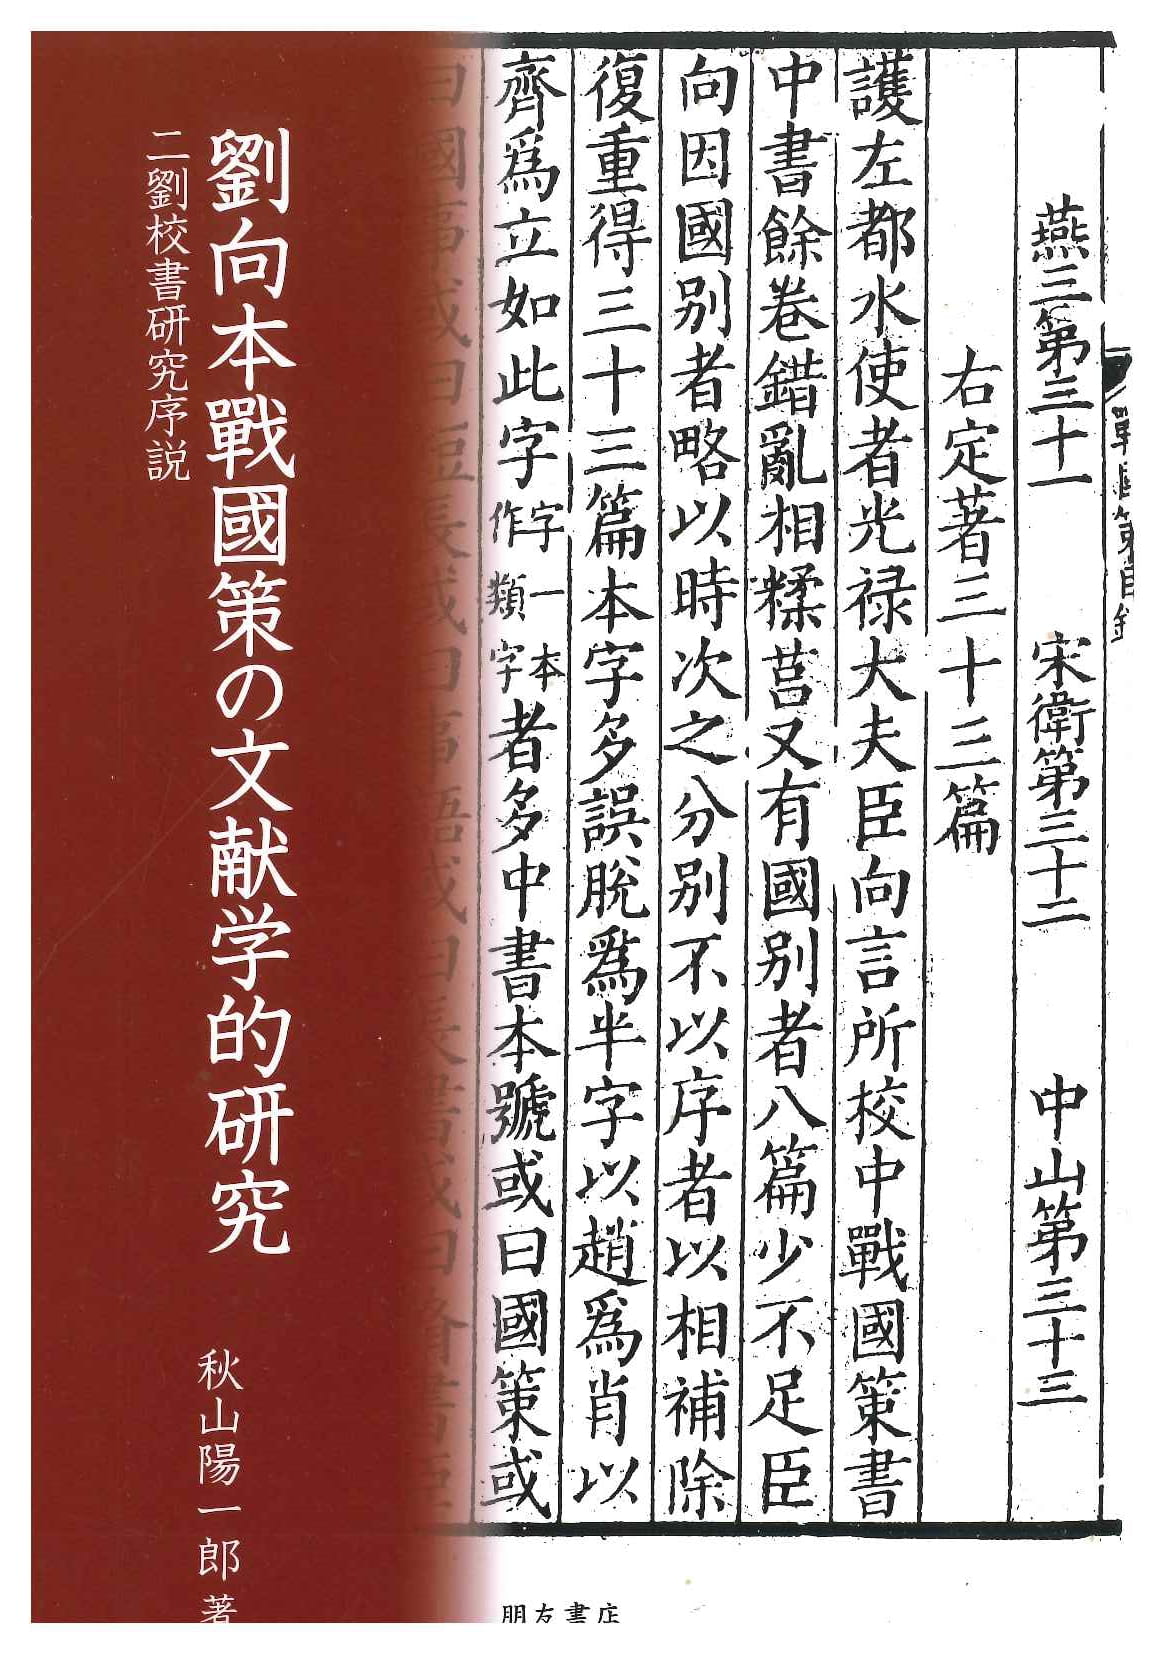 戰國策目錄
燕三第三十一　宋衛第三十二　中山第三十三
右定著三十三篇
護左都水使者光禄大夫臣向言所校中戰國策書
中書餘卷錯亂相糅莒又有國别者八篇少不足臣
向因國别者略以時次之分别不以序者以相補除
復重得三十三篇本字多誤脫爲半字以趙爲肖以
齊爲立如此字字一本作類字者多中書本號或曰國策或
曰國事或曰短長或曰事語或曰長書或曰脩書臣
劉向本戰國策の文献学的研究
二劉校書研究序説
秋山陽一郎 著
朋友書店